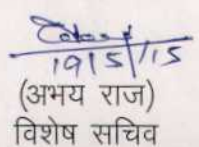 19/5/15
(अभय राज)
विशेष सचिव